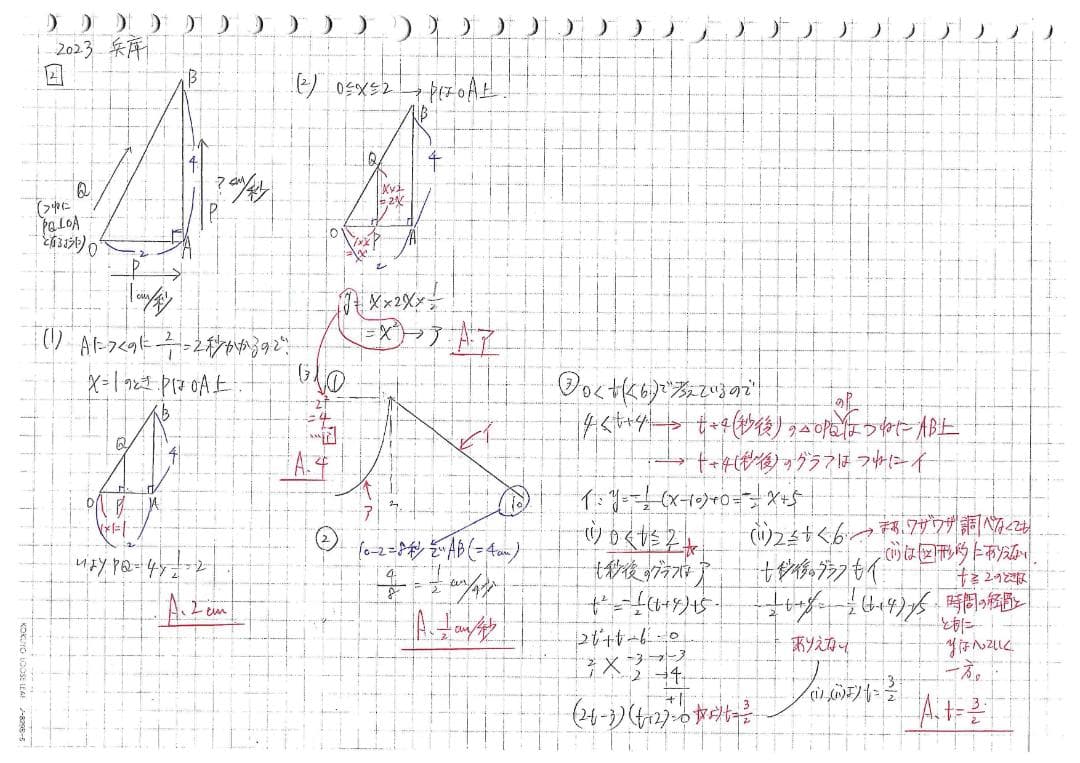 2023 兵庫
2
B
4
Q
?cm/秒
P
(つねに
PQ⊥OA
となるように)
O
2
A
P
1cm/秒
(1) Aにつくのに 2/1 = 2秒かかるので、
x=1のとき PはOA上.
B
Q
4
O
P
A
1×1=1
2
PQ=4×1/2=2
A. 2cm
(2) 0≦x≦2 → PはOA上.
B
Q
4
x×2
=2x
O
P
A
1×x
=x
2
y=x×2x×1/2
=x² → ア
A. ア
(3)
①
2²
=4
A. 4
イ
ア
2
10
②
10-2=8秒でAB(=4cm)
4/8 = 1/2 cm/秒
A. 1/2 cm/秒
③ 0<t(<6)で考えているので
4<t+4 → t+4(秒後)の△OPQのPはつねにAB上
→ t+4(秒後)のグラフはつねにイ
イ: y=-1/2(x-10)+0=-1/2x+5
(i) 0<t≦2
t秒後のグラフはア
t²=-1/2(t+4)+5
2t²+t-6=0
2 -3 → -3
1 2 → 4
+1
(2t-3)(t+2)=0 t=3/2
(ii) 2≦t<6
t秒後のグラフもイ
-1/2t+5=-1/2(t+4)+5
ありえない
(i),(ii)より t=3/2
→まあ、ワザワザ調べなくても
(ii)は図形的にありえない.
t≧2のときは
時間の経過と
ともに
yはへっていく
一方。
A. t=3/2
KOKUYO LOOSE-LEAF